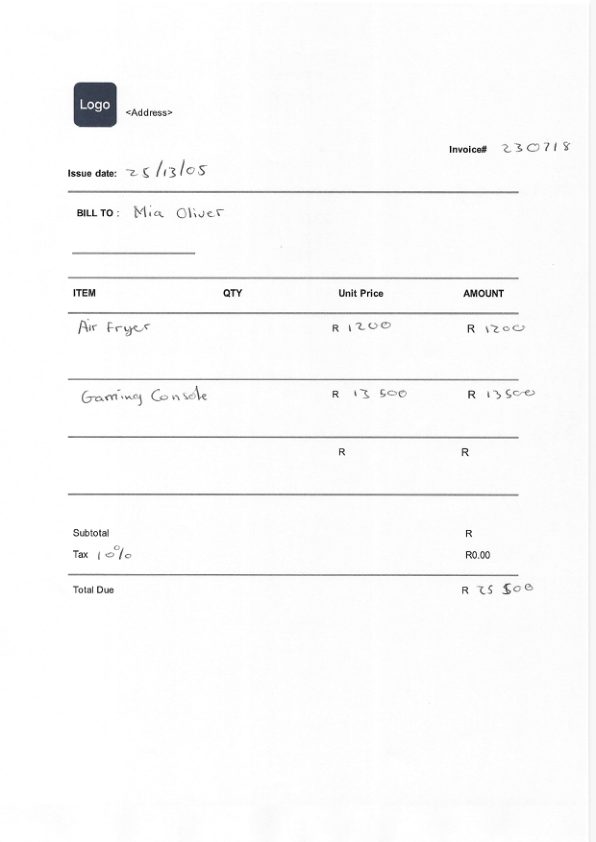 Logo
<Address>
Invoice# 230718
Issue date: 25/13/05
BILL TO : Mia Oliver
ITEM QTY Unit Price AMOUNT
Air Fryer R 1200 R 1200
Gaming Console R 13 500 R 13500
R R
Subtotal R
Tax 10% R0.00
Total Due R 25 500